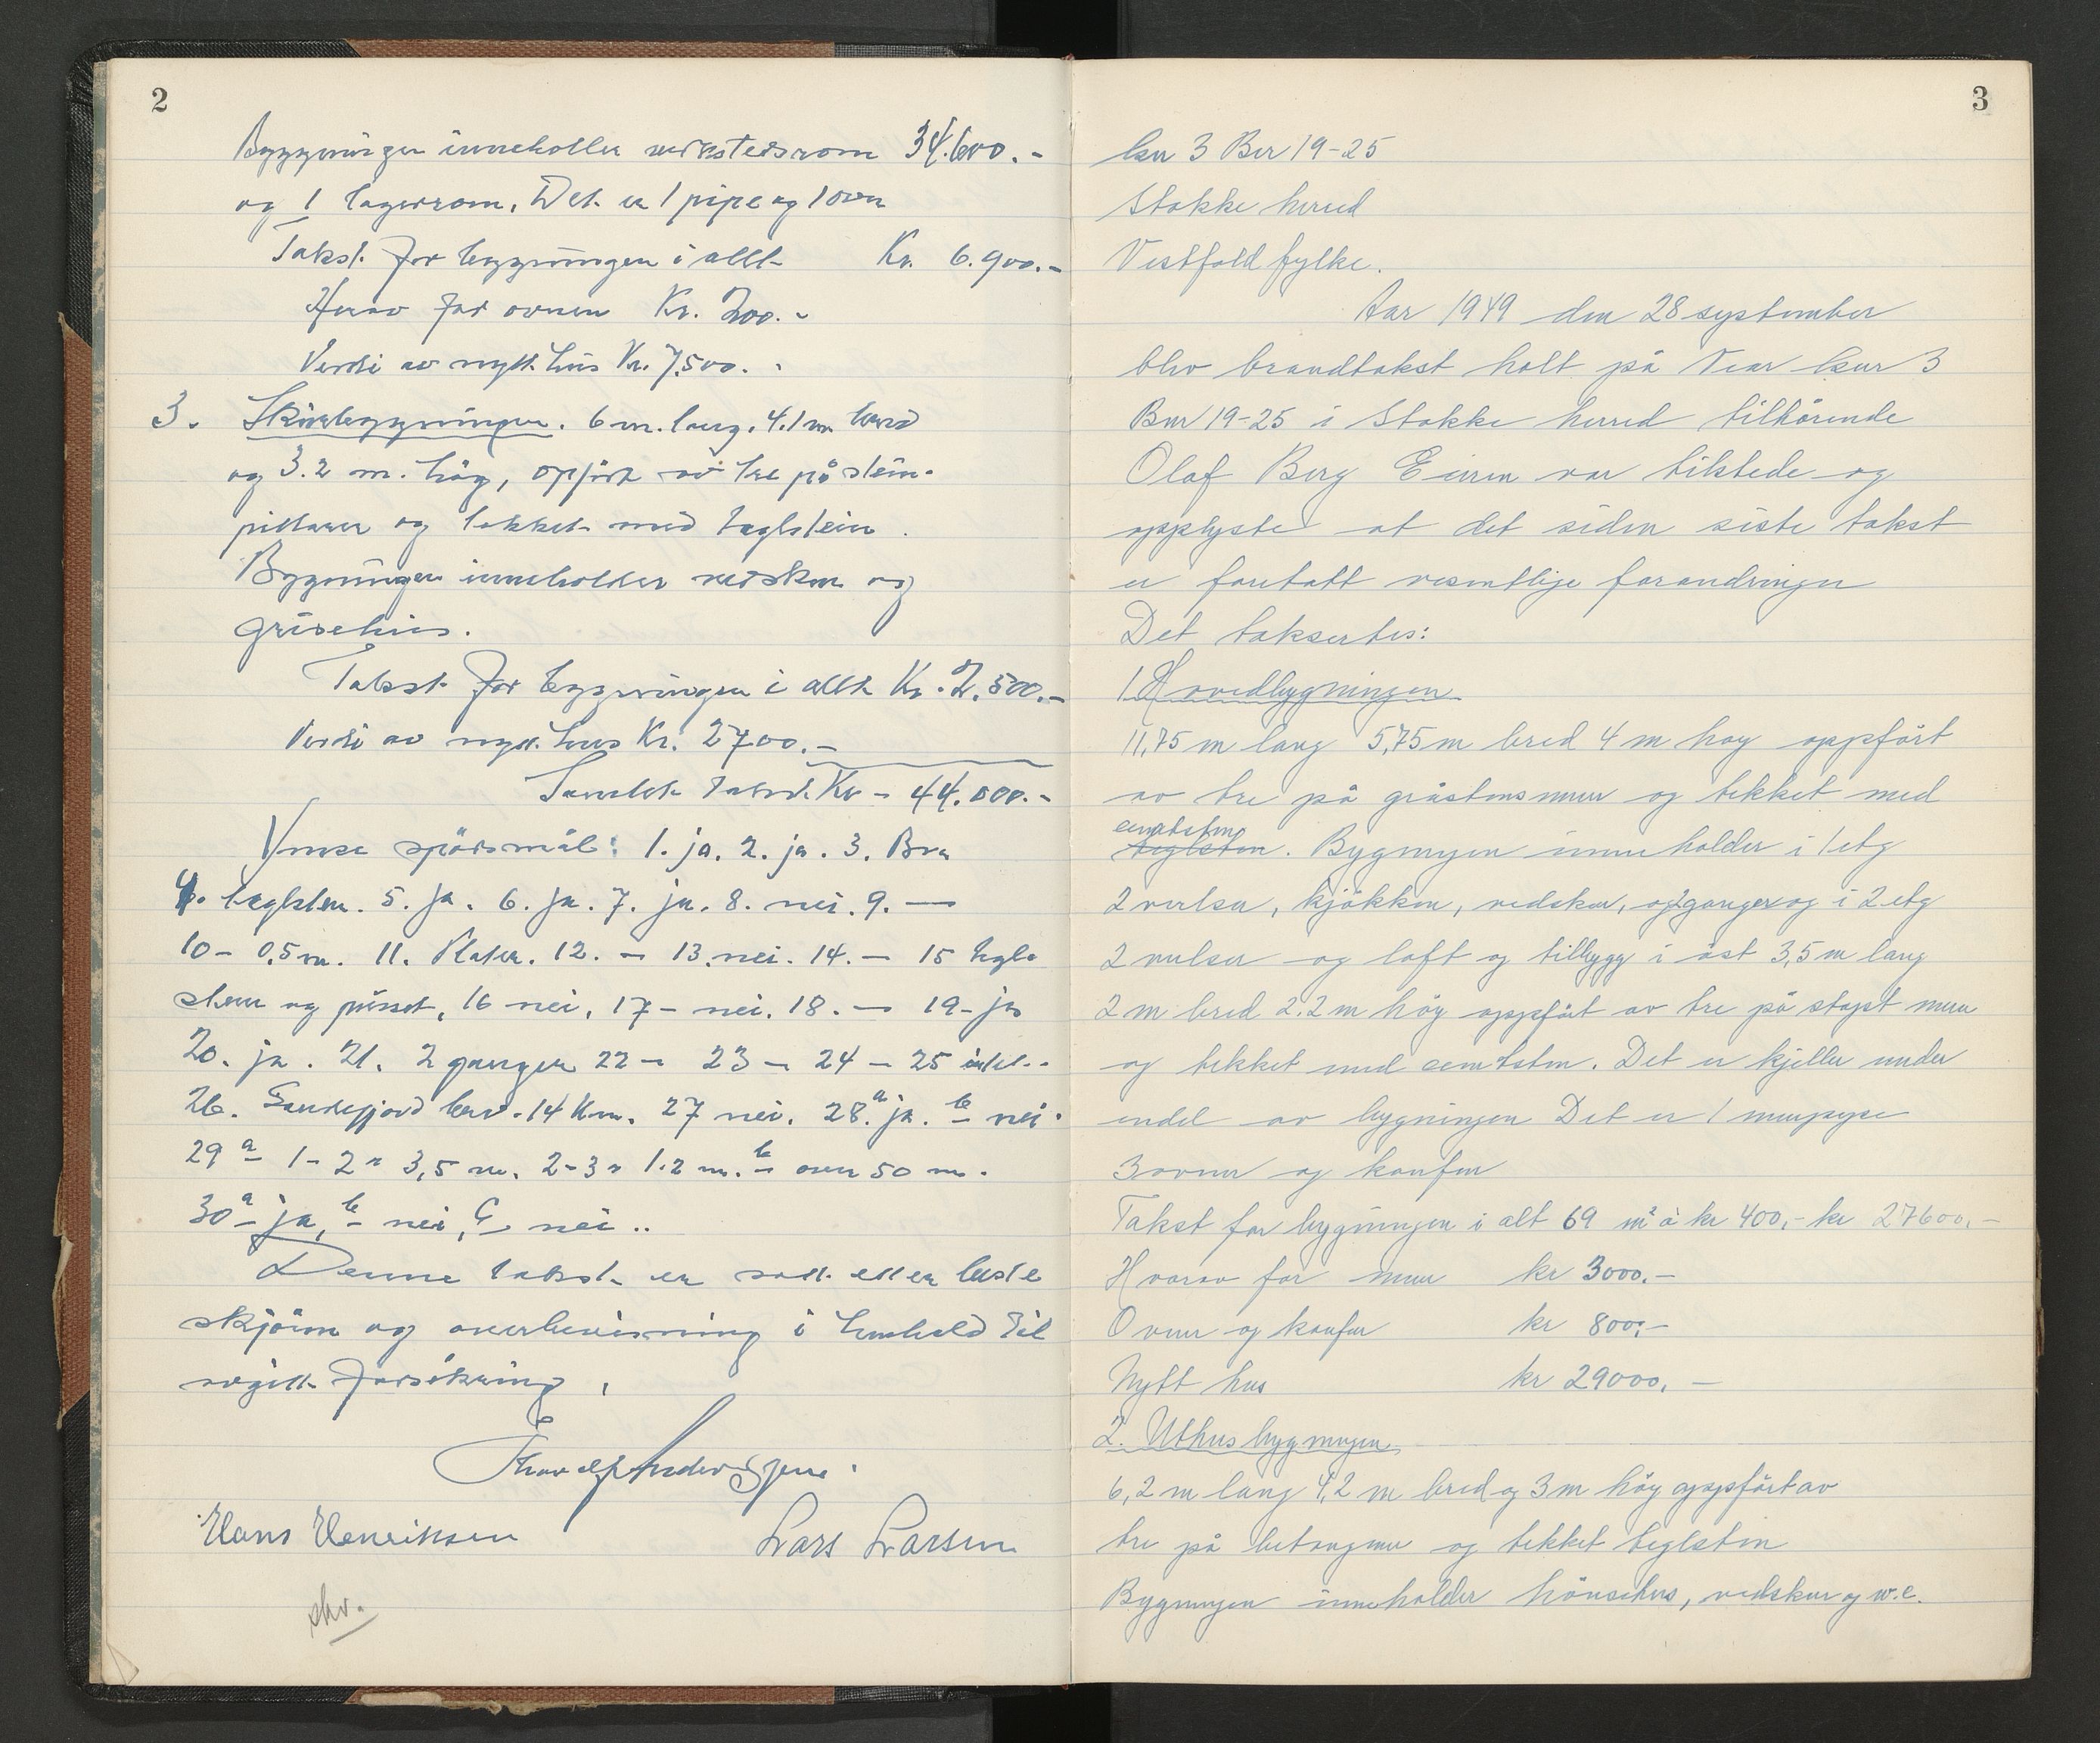 2
Byggningen inneholler verkstedsrom 34.600.-
og 1 lagerrom. Det er 1 pipe og 1 ovn
Takst for byggningen i allt Kr. 6.900.-
Herav for ovnen Kr. 200.-
Verdi av nytt hus Kr. 7.500.-
3. Skurbyggningen. 6 m. lang. 4.1 m bred
og 3.2 m. høg, opført av tre på stein-
pillarer og tekket med taglstein.
Bygningen inneholder vedskur og
grisehus.
Takst for bygningen i allt Kr. 2.500.-
Verdi av nytt hus Kr. 2700.-
Samlet takst Kr - 44.000.-
Ymse spörsmål: 1. ja. 2. ja. 3. Bra
4. taglsten. 5. ja. 6. ja. 7. ja. 8. nei. 9. —
10 - 0,5 m. 11. Plater. 12. — 13. nei. 14. — 15 tegl-
sten og pusset, 16 nei, 17 - nei. 18. — 19 - ja
20. ja. 21. 2 ganger 22 — 23 — 24 — 25
26. Sandefjord brv. 14 Km. 27 nei. 28 a ja. b nei.
29 a 1 - 2 = 3,5 m. 2 - 3 = 1.2 m. b over 50 m.
30 a ja, b nei, c nei..
Denne takst er satt etter beste
skjönn og overbevisning i henhold til
avgitt forsikring.
Hans Henriksen Lars Larsen
skv.
3
Gnr 3 Bnr 19-25
Stokke herred
Vestfold fylke.
Aar 1949 den 28 september
blev brandtakst holt på Vear Gnr 3
Bnr 19-25 i Stokke herred tilhörende
Olaf Berg Eieren var tilstede og
opplyste at det siden siste takst
er foretatt vesentlige forandringer
Det taksertes:
1. Hovedbygningen
11,75 m lang 5,75 m bred 4 m høy oppfört
av tre på gråstensmur og tekket med
cemtsten
teglsten. Bygningen inneholder i 1 etg
2 verlser, kjøkken, vedskur, og 2 ganger og i 2 etg
2 verlser og loft og tilbygg i øst 3,5 m lang
2 m bred 2.2 m høy oppfört av tre på støpt mur
og tekket med cemtsten. Det er kjeller under
endel av bygningen Det er 1 murpipe
3 ovner og komfur
Takst for bygningen i alt 69 m² à kr 400,- kr 27600,-
Hvorav for mur kr 3000.-
Ovner og komfur kr 800,-
Nytt hus kr 29000,-
2. Uthusbygningen
6,2 m lang 4,2 m bred og 3 m høy oppfört av
tre på betongmur og tekket teglsten
Bygningen inneholder hönsehus, vedskur og w.c.